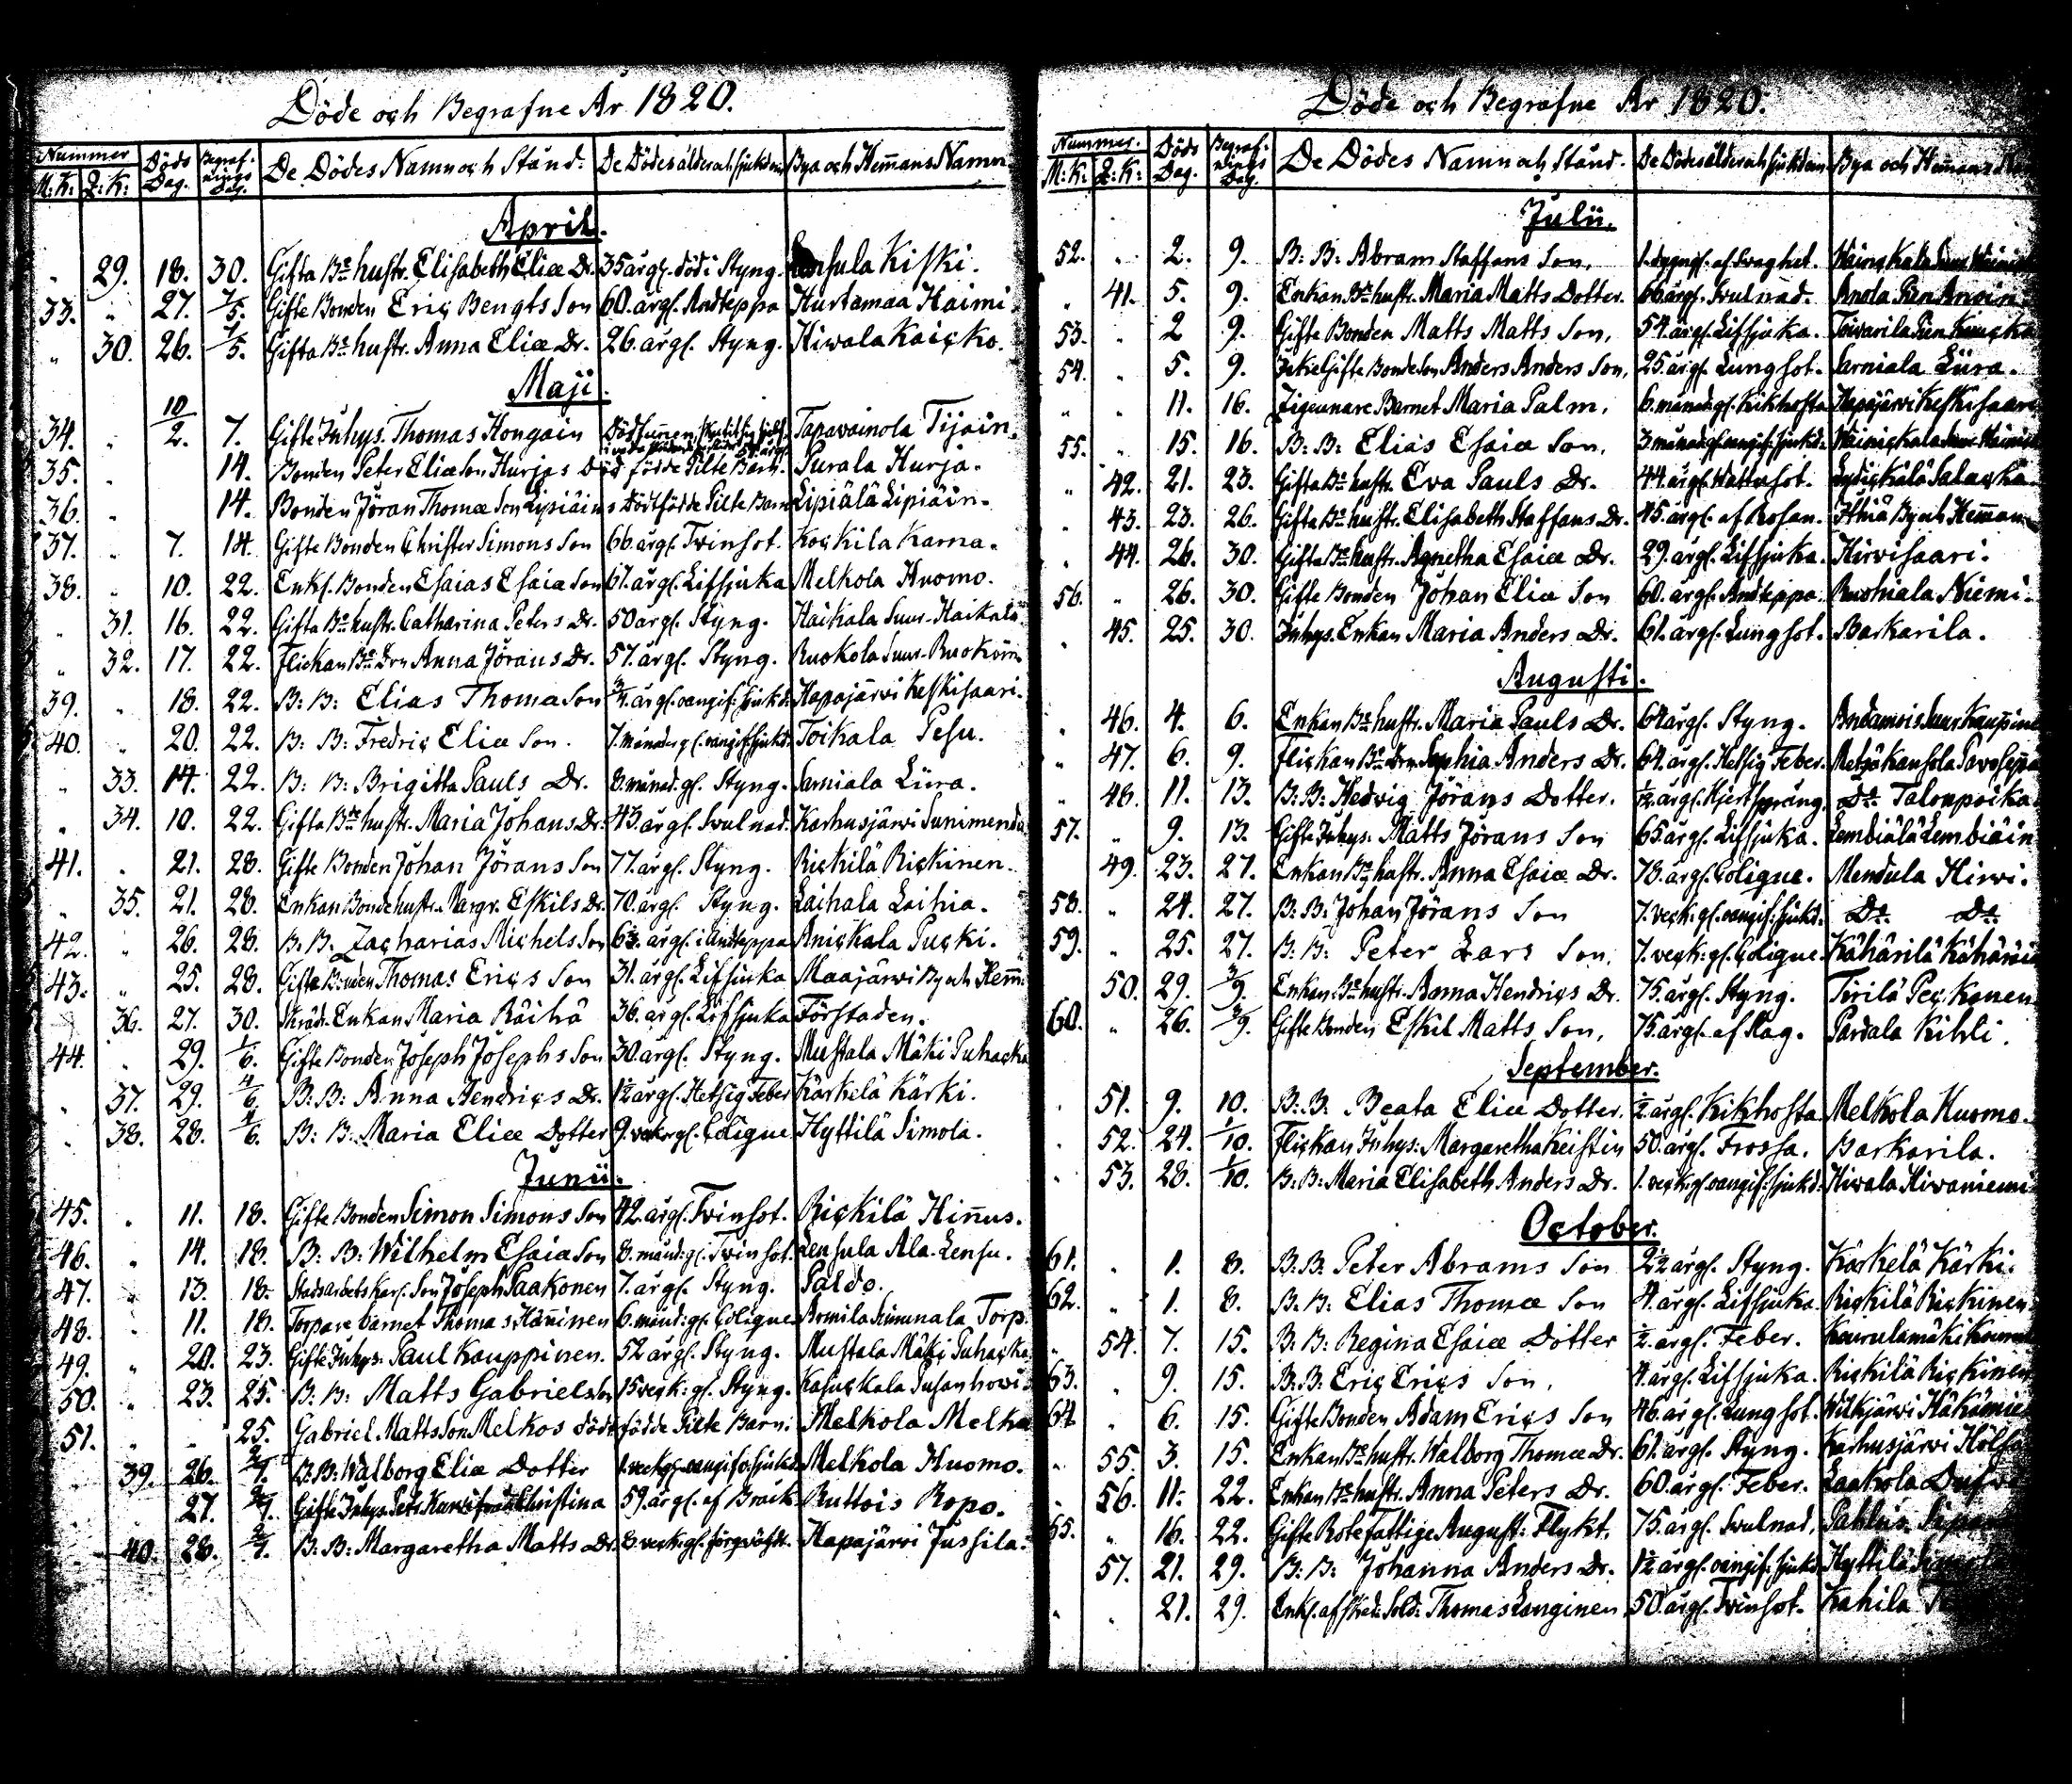 Döde och Begrafne År 1820.
Nummer. Döds Dag. Begraf-nings Dag. De Dödes Namn och Stånd. De Dödes ålder och sjukdom Bya och Hemmans Namn.
M: K: Q: K:
April.
" 29. 18. 30. Gifta Bde hustr. Elisabeth Eliæ Dr. 35 årgl. död i Styng. Kiski.
33. " 27. 7/5. Gifte Bonden Eric Bengts Son 60. årgl. Andteppa Hurtamaa Haimi.
" 30. 26. 7/5. Gifta Bde hustr. Anna Eliæ Dr. 26. årgl. Styng. Hiwala Kaicko.
Maji.
34. " 10/2. 7. Gifte Inhys. Thomas Hongain Död funnen, Tapavainola Tijain.
35. " 14. Bonden Peter Eliæ Son Hurjas död födde Pilte Barn. Purala Hurja.
36. " 14. Bonden Jöran Thomæ Son Lipiäins Dödfödde Pilte Barn Lipiälä Lipiäin.
37. " 7. 14. Gifte Bonden Christer Simons Son 66. årgl. Tvinsot. Kockila Karna.
38. " 10. 22. Enkl. Bonden Esaias Esaiæ Son 61. årgl. Lifsjuka Melkola Huomo.
" 31. 16. 22. Gifta Bde hustr. Catharina Peters Dr. 50 årgl. Styng. Haikala Suur-Haikala
" 32. 17. 22. Flickan Bde Drn Anna Jörans Dr. 57. årgl. Styng. Ruokola Suur-Ruokoin
39. " 18. 22. B: B: Elias Thomæ Son 3/4. årgl. oangif: sjukd: Hapajärwi Keskisaari.
40. " 20. 22. B: B: Fredric Eliæ Son. 7. månader gl. oangif: sjukd: Toikala Pesu.
" 33. 14. 22. B: B: Brigitta Pauls Dr. 8. månad. gl. Styng. Sarniala Liira.
" 34. 10. 22. Gifta Bde hustr. Maria Johans Dr. 43. årgl. Svulnad. Karhusjärwi Sunimenda
41. " 21. 28. Gifte Bonden Johan Jörans Son 77. årgl. Styng. Rickilä Rickinen.
" 35. 21. 28. Enkan Bonde hustr. Margr. Eskils Dr. 70. årgl. Styng. Laihala Laihia.
42. " 26. 28. B: B: Zacharias Michels Son årgl. i Andteppa Anickala Pucki.
43. " 25. 28. Gifte Bonden Thomas Erics Son 31. årgl. Lifsjuka Maajärwi By och Hem:
" 36. 27. 30. Skräd. Enkan Maria Räihä 36. årgl. Lifsjuka Förstaden.
44. " 29. 1/6. Gifte Bonden Joseph Josephs Son 30. årgl. Styng. Mustala Mäki Puhacka
" 37. 29. 4/6. B: B: Anna Hendrics Dr. 1½ årgl. Hetsig Feber Kärkelä Kärki.
" 38. 28. 4/6. B: B: Maria Eliæ Dotter 9. veck: gl. Colique Hyttilä Simola.
Junii.
45. " 11. 18. Gifte Bonden Simon Simons Son 42. årgl. Tvinsot. Rickilä Hinnus.
46. " 14. 18. B: B: Wilhelm Esaiæ Son 8. månd: gl. Tvinsot. Lensula Ala-Lensu.
47. " 13. 18. Stadsarbetskarl. Son Joseph Paakonen 7. årgl. Styng. Paldo.
48. " 11. 18. Torpare barnet Thomas Hänninen 6. månd: gl. Colique Torp.
49. " 20. 23. Gifte Inhys. Paul Kauppinen. 52 årgl. Styng. Mustala Mäki Puhacka
50. " 23. 25. B: B: Matts Gabriels Son 15 veck: gl. Styng. Kasuckala Susanhowi.
51. " " 25. Gabriel Matts Son Melkos död födde Pilte Barn. Melkola Melko
" 39. 26. 2/7. B: B: Walborg Eliæ Dotter 1. veck gl. oangif: sjukd. Melkola Huomo.
27. 2/7. Gifte Inhys. Petr Christina 59. årgl. af Bråck Ruttois Ropo.
40. 28. 2/7. B: B: Margaretha Matts Dr. 8. veck: gl. Hapajärwi Jussila.
Döde och Begrafne År 1820.
Nummer. Döds Dag. Begraf-nings Dag. De Dödes Namn och Stånd. De Dödes ålder och sjukdom Bya och Hemmans
M: K: Q: K:
Julii.
52. " 2. 9. B: B: Abram Staffans Son. 1. dygngl. af Svaghet.
" 41. 5. 9. Enkan Bde hustr. Maria Matts Dotter. 66. årgl. Svulnad. Anola
53. " 2 9. Gifte Bonden Matts Matts Son. 54. årgl. Lifsjuka. Toiwarila
54. " 5. 9. Icke Gifte Bonde Son Anders Anders Son. 25. årgl. Lungsot. Sarniala Liira.
" " 11. 16. Zigeunare Barnet Maria Palm. 6. månad: gl. Kikhosta Hapajärwi Keskisaari
55. " 15. 16. B: B: Elias Esaiæ Son. 3 månad: gl. oangif: sjukd:
" 42. 21. 23. Gifta Bde hustr. Eva Pauls Dr. 44. årgl. Wattusot.
" 43. 23. 26. Gifta Bde hustr. Elisabeth Staffans Dr. 45. årgl. af Rosen. By och Hemman
" 44. 26. 30. Gifta Bde hustr. Agnetha Esaiæ Dr. 29. årgl. Lifsjuka. Hirvisaari.
56. " 26. 30. Gifte Bonden Johan Eliæ Son 60. årgl. Andteppa. Ruohiala Niemi.
" 45. 25. 30. Inhys. Enkan Maria Anders Dr. 61. årgl. Lungsot. Barkarila.
Augusti.
" 46. 4. 6. Enkan Bde hustr. Maria Pauls Dr. 64 årgl. Styng.
" 47. 6. 9. Flickan Bde Drn Sophia Anders Dr. 64. årgl. Hetsig Feber.
" 48. 11. 13. B: B: Hedvig Jörans Dotter. årgl. Hjertspräng. Do Talonpoika
57. " 9. 13. Gifte Inhys: Matts Jörans Son 65. årgl. Lifsjuka. Lembiälä Lembiäin
49. 23. 27. Enkan Bde hustr. Anna Esaiæ Dr. 78. årgl. Colique. Mendula Hirvi.
58. " 24. 27. B: B: Johan Jörans Son 7. veck: gl. oangif: sjukd. Do Do
59. " 25. 27. B: B: Peter Lars Son. 7. veck: gl. Colique Kähärilä
50. 29. 3/9. Enkan Bde hustr. Anna Hendrics Dr. 75. årgl. Styng. Tirilä Peckonen
60. " 26. 3/9. Gifte Bonden Eskil Matts Son. 75. årgl. af Slag. Partala Kihli.
September.
51. 9. 10. B: B: Beata Eliæ Dotter. ½. årgl. Kikhosta Melkola Huomo.
52. 24. 1/10. Flickan Inhys: Margaretha Keistin 50. årgl. Frossa. Barkarila.
53. 28. 1/10. B: B: Maria Elisabeth Anders Dr. 1. veck: gl. oangif: sjukd. Hiwala Hiwaniemi
October.
61. " 1. 8. B: B: Peter Abrams Son 2½ årgl. Styng. Kärkelä Kärki.
62. " 1. 8. B: B: Elias Thomæ Son 4. årgl. Lifsjuka. Rickilä Rickinen
" 54. 7. 15. B: B: Regina Esaiæ Dotter ½. årgl. Feber.
63. " 9. 15. B: B: Eric Erics Son. 4. årgl. Lifsjuka. Rickilä Rickinen
64. " 6. 15. Gifte Bonden Adam Erics Son 46. årgl. Lungsot. Wilkjärwi
" 55. 3. 15. Enkan Bde hustr. Walborg Thomæ Dr. 61. årgl. Styng. Karhusjärwi
56. 11. 22. Enkan Bde hustr. Anna Peters Dr. 60. årgl. Feber. Laakola
65. " 16. 22. Gifte Rotefattige August: Flykt. 75. årgl. Svulnad.
57. 21. 29. B: B: Johanna Anders Dr. 1½ årgl. oangif: sjukd. Hyttilä
" " 21. 29. Enkl. afsked: Sold: Thomas Langinen 50. årgl. Tvinsot. Kahila